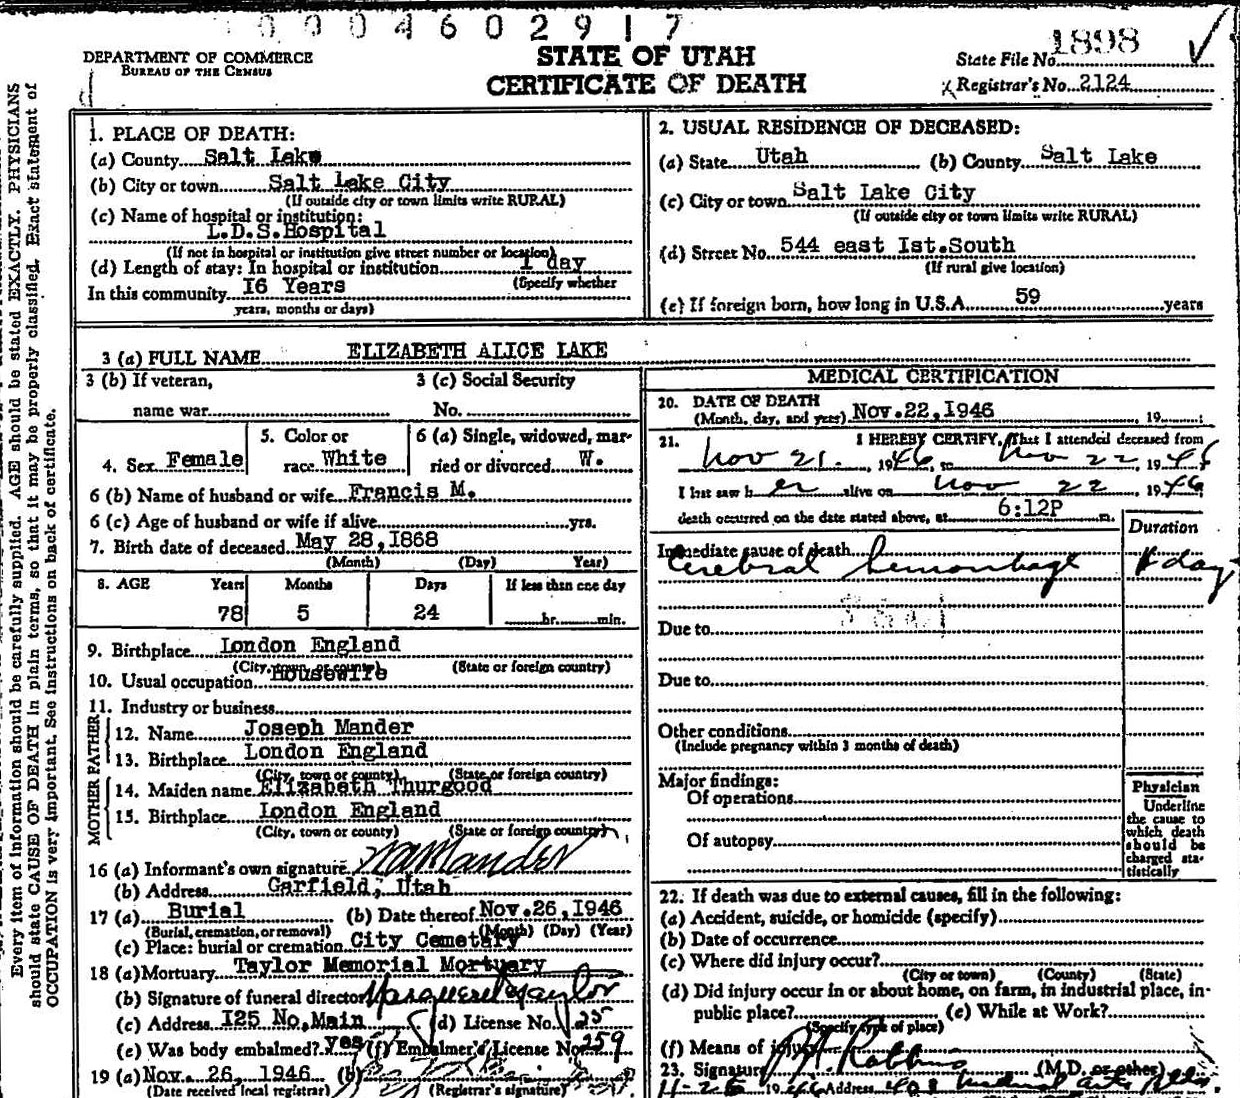 0004602917
DEPARTMENT OF COMMERCE
BUREAU OF THE CENSUS
STATE OF UTAH
CERTIFICATE OF DEATH
State File No. 1898
Registrar's No. 2124
Every item of information should be carefully supplied. AGE should be stated EXACTLY. PHYSICIANS
should state CAUSE OF DEATH in plain terms, so that it may be properly classified. Exact statement of
OCCUPATION is very important. See instructions on back of certificate.
1. PLACE OF DEATH:
(a) County Salt Lake
(b) City or town Salt Lake City
(If outside city or town limits write RURAL)
(c) Name of hospital or institution:
L.D.S.Hospital
(If not in hospital or institution give street number or location)
(d) Length of stay: In hospital or institution 1 day
(Specify whether
In this community I6 Years
years, months or days)
2. USUAL RESIDENCE OF DECEASED:
(a) State Utah (b) County Salt Lake
(c) City or town Salt Lake City
(If outside city or town limits write RURAL)
(d) Street No. 544 east Ist.South
(If rural give location)
(e) If foreign born, how long in U.S.A. 59 years
3 (a) FULL NAME ELIZABETH ALICE LAKE
3 (b) If veteran,
name war
3 (c) Social Security
No.
4. Sex Female
5. Color or
race White
6 (a) Single, widowed, mar-
ried or divorced W.
6 (b) Name of husband or wife Francis M.
6 (c) Age of husband or wife if alive yrs.
7. Birth date of deceased May 28,I868
(Month) (Day) Year)
8. AGE Years Months Days If less than one day
78 5 24 hr. min.
9. Birthplace London England
(City, town, or county) (State or foreign country)
10. Usual occupation Housewife
11. Industry or business
FATHER
12. Name Joseph Mander
13. Birthplace London England
(City, town or county) (State or foreign country)
MOTHER
14. Maiden name Elizabeth Thurgood
15. Birthplace London England
(City, town or county) (State or foreign country)
16 (a) Informant's own signature Mander
(b) Address Garfield, Utah
17 (a) Burial (b) Date thereof Nov.26,I946
(Burial, cremation, or removal) (Month) (Day) (Year)
(c) Place: burial or cremation City Cemetary
18 (a) Mortuary Taylor Memorial Mortuary
(b) Signature of funeral director Taylor
(c) Address I25 No.Main (d) License No. 25
(e) Was body embalmed? yes (f) Embalmer's License No. 259
19 (a) Nov. 26, 1946 (b)
(Date received local registrar) (Registrar's signature)
MEDICAL CERTIFICATION
20. DATE OF DEATH
(Month, day, and year) Nov.22,I946 19
21. I HEREBY CERTIFY, That I attended deceased from
Nov 21, 1946, to Nov 22, 1946
I last saw her alive on Nov 22, 1946
death occurred on the date stated above, at 6:12P m.
Duration
Immediate cause of death
Cerebral hemorrhage 1 day
Due to
Due to
Other conditions
(Include pregnancy within 3 months of death)
Major findings:
Of operations
Of autopsy
Physician
Underline
the cause to
which death
should be
charged sta-
tistically
22. If death was due to external causes, fill in the following:
(a) Accident, suicide, or homicide (specify)
(b) Date of occurrence
(c) Where did injury occur?
(City or town) (County) (State)
(d) Did injury occur in or about home, on farm, in industrial place, in-
public place? (e) While at Work?
(Specify type of place)
(f) Means of injury
23. Signature Robbins (M.D. or other)
11-25 1946 Address 408 Medical Arts Bldg.